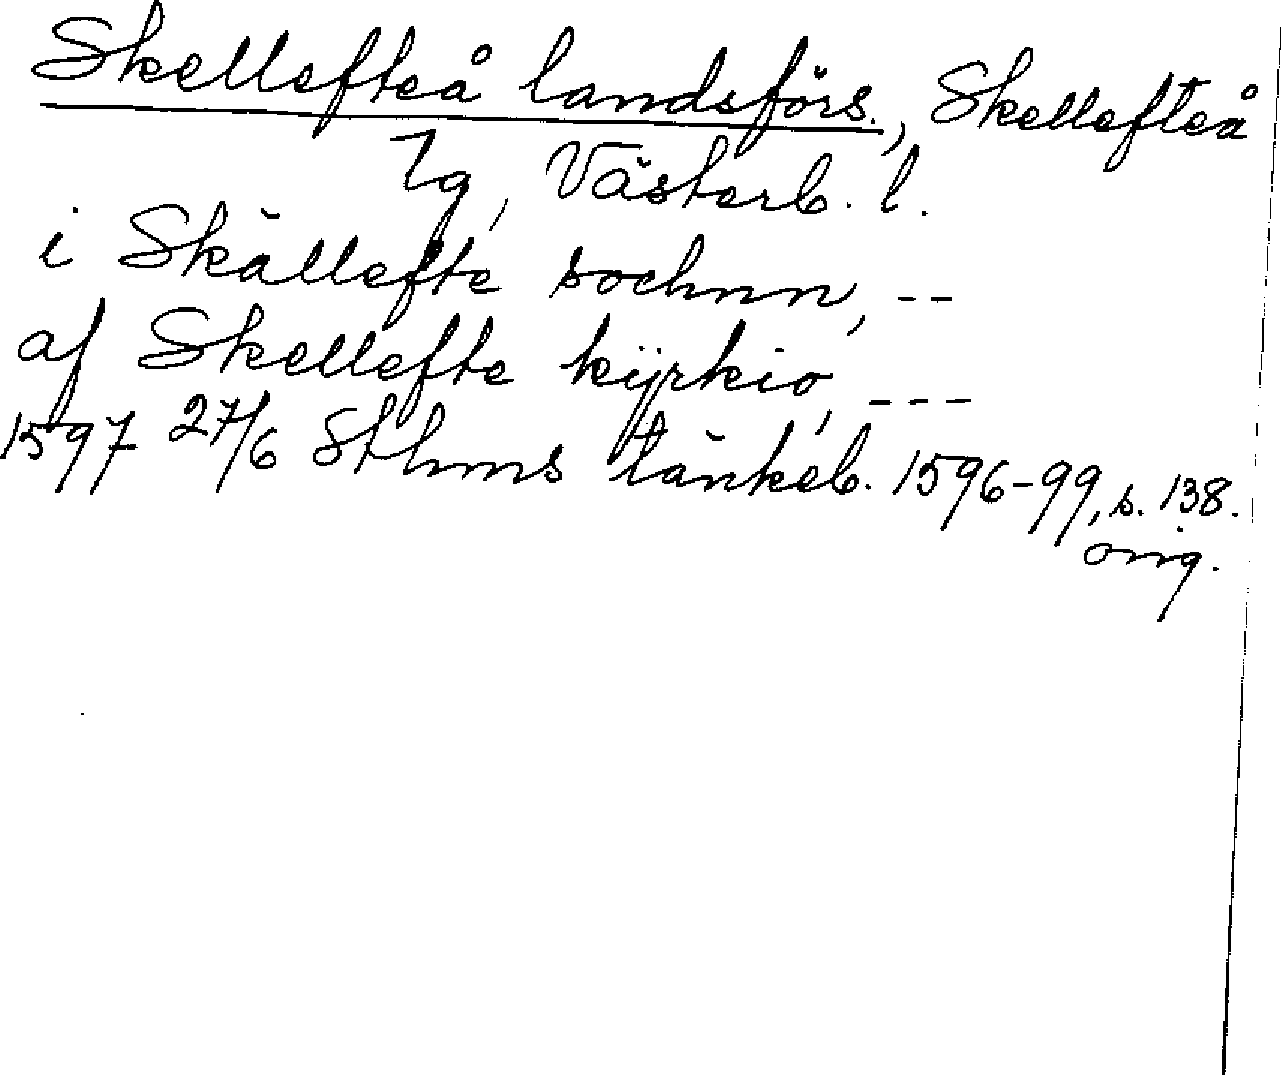 Skellefteå landsförs., Skellefteå
Tg, Västerb. l.
i Skällefte sochnn, --
af Skellefte kÿrkio, ---
1597 27/6 Sthms tänkeb. 1596-99, s. 138.
orig.